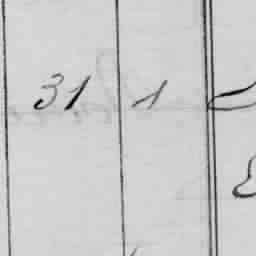 31 1